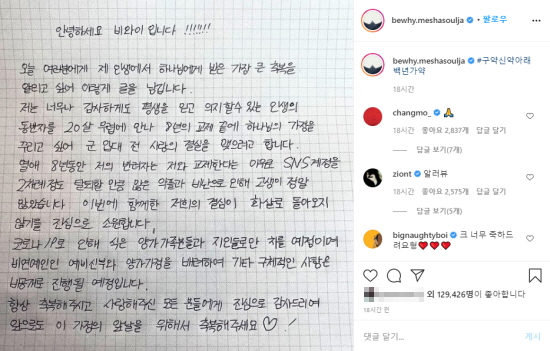 안녕하세요 비와이 입니다 !!!!!!!
오늘 여러분에게 제 인생에서 하나님에게 받은 가장 큰 축복을
알리고 싶어 이렇게 글을 남깁니다.
저는 너무나 감사하게도 평생을 믿고 의지할수 있는 인생의
동반자를 20살 무렵에 만나 8년의 교제 끝에 하나님의 가정을
꾸리고 싶어 군 입대 전 사랑의 결실을 맺으려고 합니다.
연애 8년동안 저의 반려자는 저와 교제한다는 이유로 SNS계정을
2차례정도 탈퇴할 만큼 많은 악플과 비난으로 인해 고생이 정말
많았습니다. 이번에 함께한 저희의 결심이 화살로 돌아오지
않기를 진심으로 소원합니다.
코로나19로 인해 식은 양가 가족분들과 지인들로만 치를 예정이며
비연예인인 예비신부와 양가가정을 배려하여 기타 구체적인 사항은
비공개로 진행될 예정입니다.
항상 축복해주시고 사랑해주신 모든 분들에게 진심으로 감사드리며
앞으로도 이 가정의 앞날을 위해서 축복해주세요 ♡ !
bewhy.meshasoulja • 팔로우
bewhy.meshasoulja #구약신약아래
백년가약
18시간
changmo_ 🙏
18시간 좋아요 2,837개 답글 달기
답글 보기(7개)
ziont 알러뷰
18시간 좋아요 2,575개 답글 달기
답글 보기(5개)
bignaughtyboi 크 너무 축하드
려요형❤❤❤
외 129,426명이 좋아합니다
18시간 전
댓글 달기...
게시